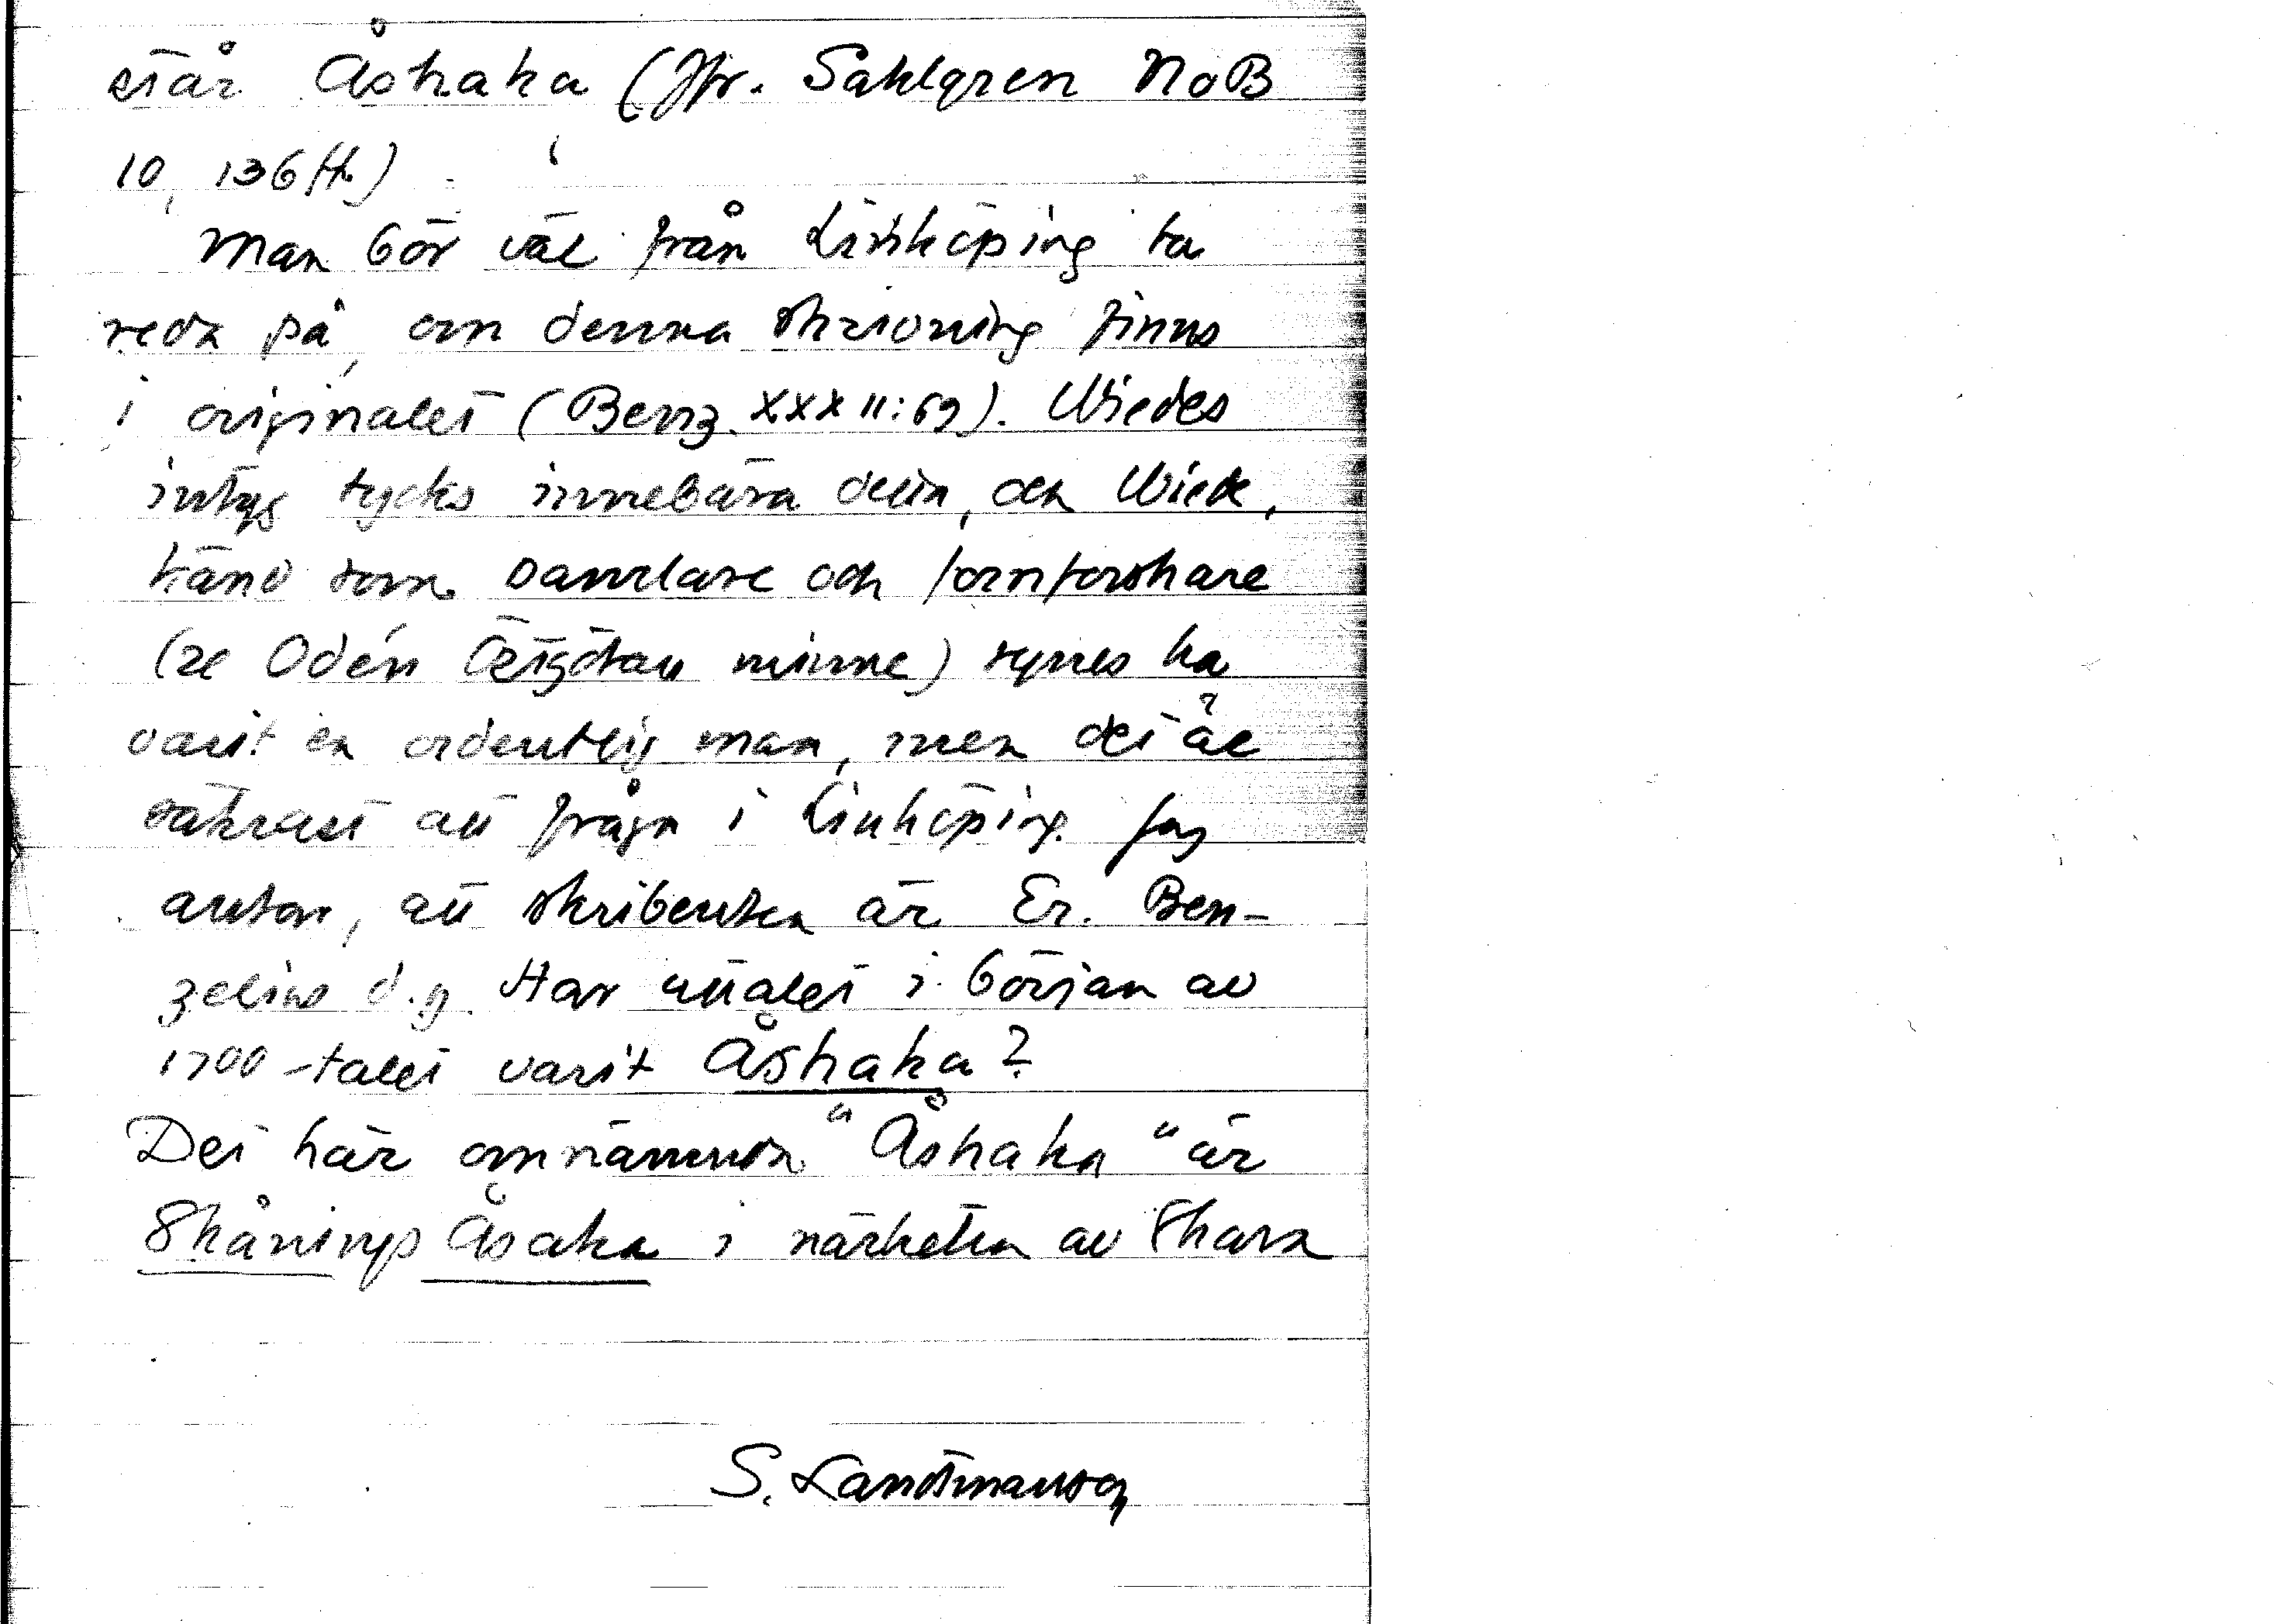 står Åshaka (Jfr. Sahlgren NoB
10, 136 ff.)
Man bör väl från Linköping ta
reda på, om denna skrivning finns
i originalet (Benz. XXXII:69). Wiedes
intyg tycks innebära detta, och Wiede,
känd som samlare och fornforskare
(se Odén Östgötars minne) synes ha
varit en ordentlig man, men det är
säkrast att fråga i Linköping. Jag
antar, att skribenten är Er. Ben-
zelius d.y. Har uttalet i början av
1700-talet varit Åshaka?
Det här omnämnda "Åshaka" är
Skånings Åsaka i närheten av Skara
S. Landtmanson